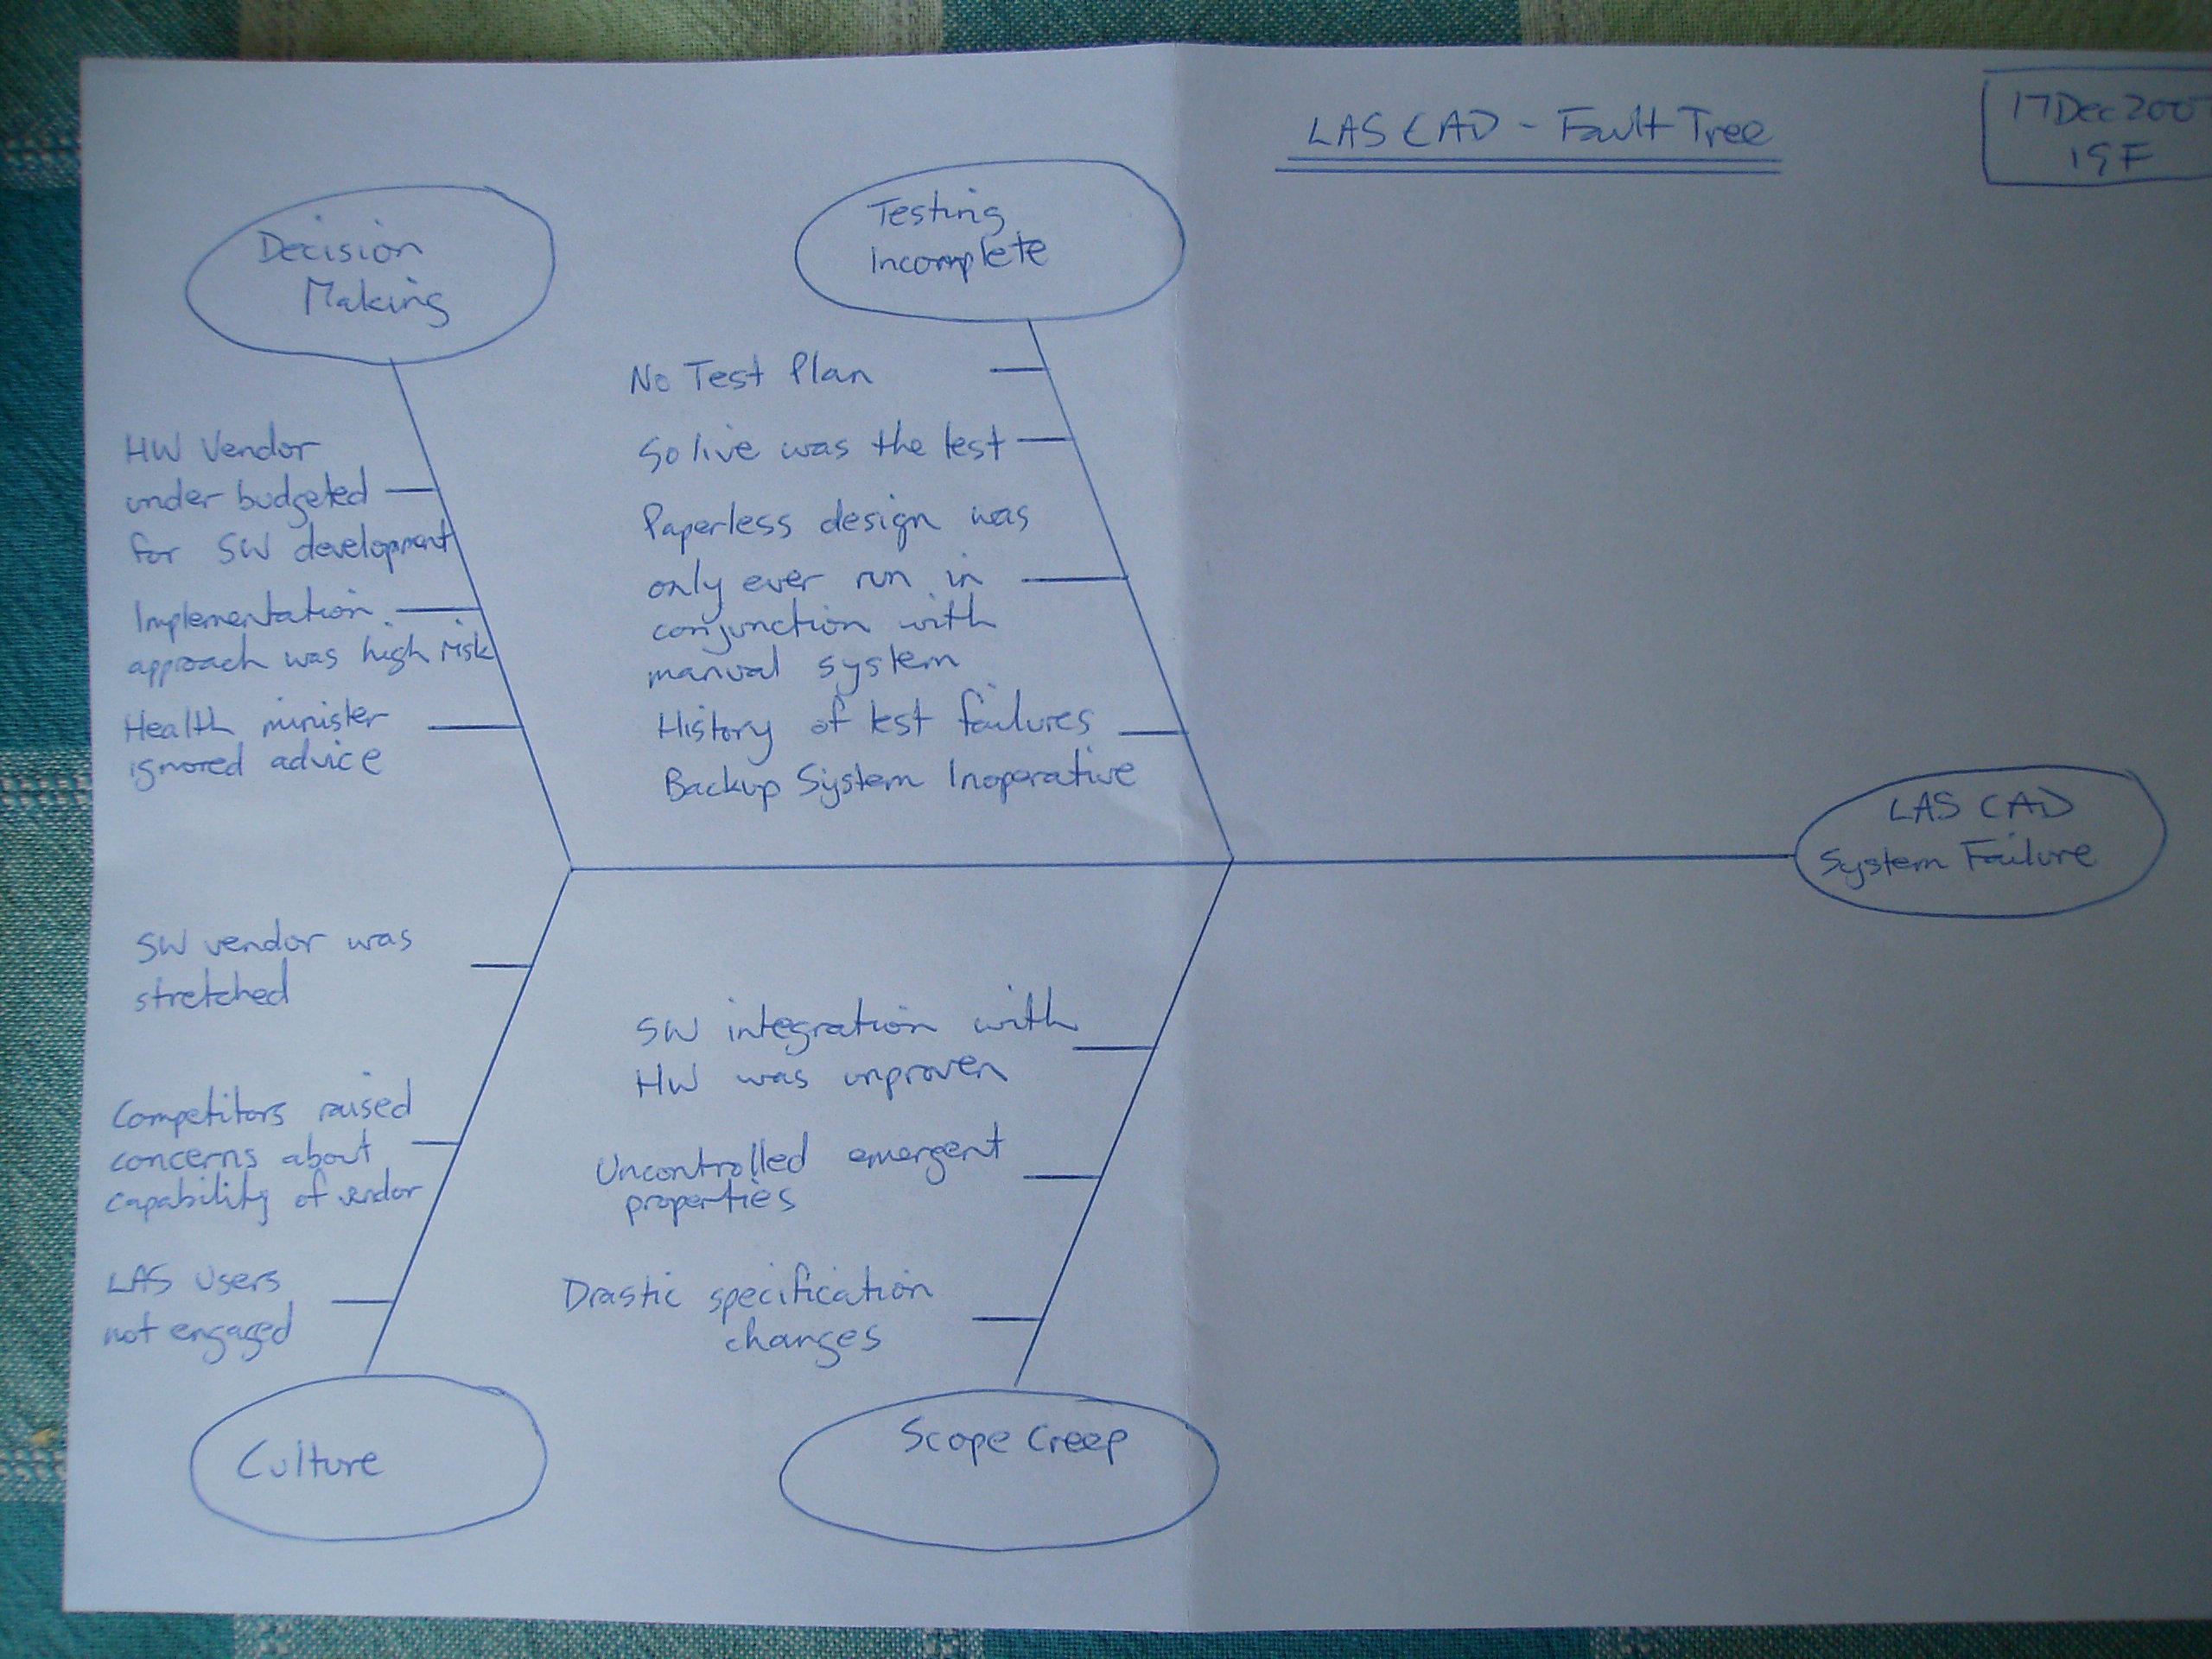 LAS CAD - Fault Tree
17 Dec 200
Decision
Making
Testing
Incomplete
HW Vendor
under budgeted
for SW development
Implementation
approach was high risk
Health minister
ignored advice
No Test Plan
So live was the test
Paperless design was
only ever run in
conjunction with
manual system
History of test failures
Backup System Inoperative
LAS CAD
System Failure
SW vendor was
stretched
Competitors raised
concerns about
capability of vendor
LAS Users
not engaged
SW integration with
HW was unproven
Uncontrolled emergent
properties
Drastic specification
changes
Culture
Scope Creep